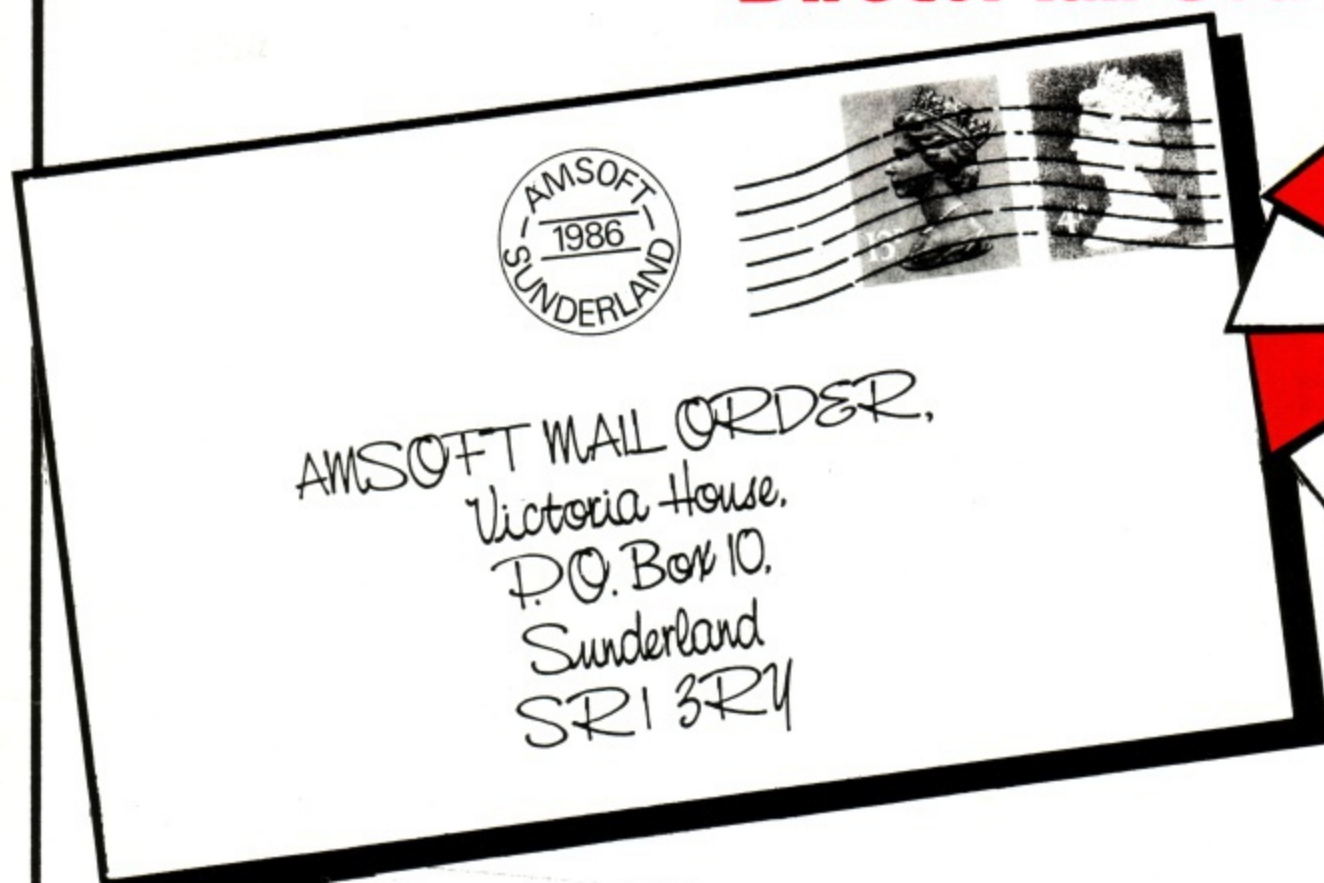 AMSOFT
1986
SUNDERLAND
13
4
AMSOFT MAIL ORDER,
Victoria House,
P.O. Box 10,
Sunderland
SR1 3RY